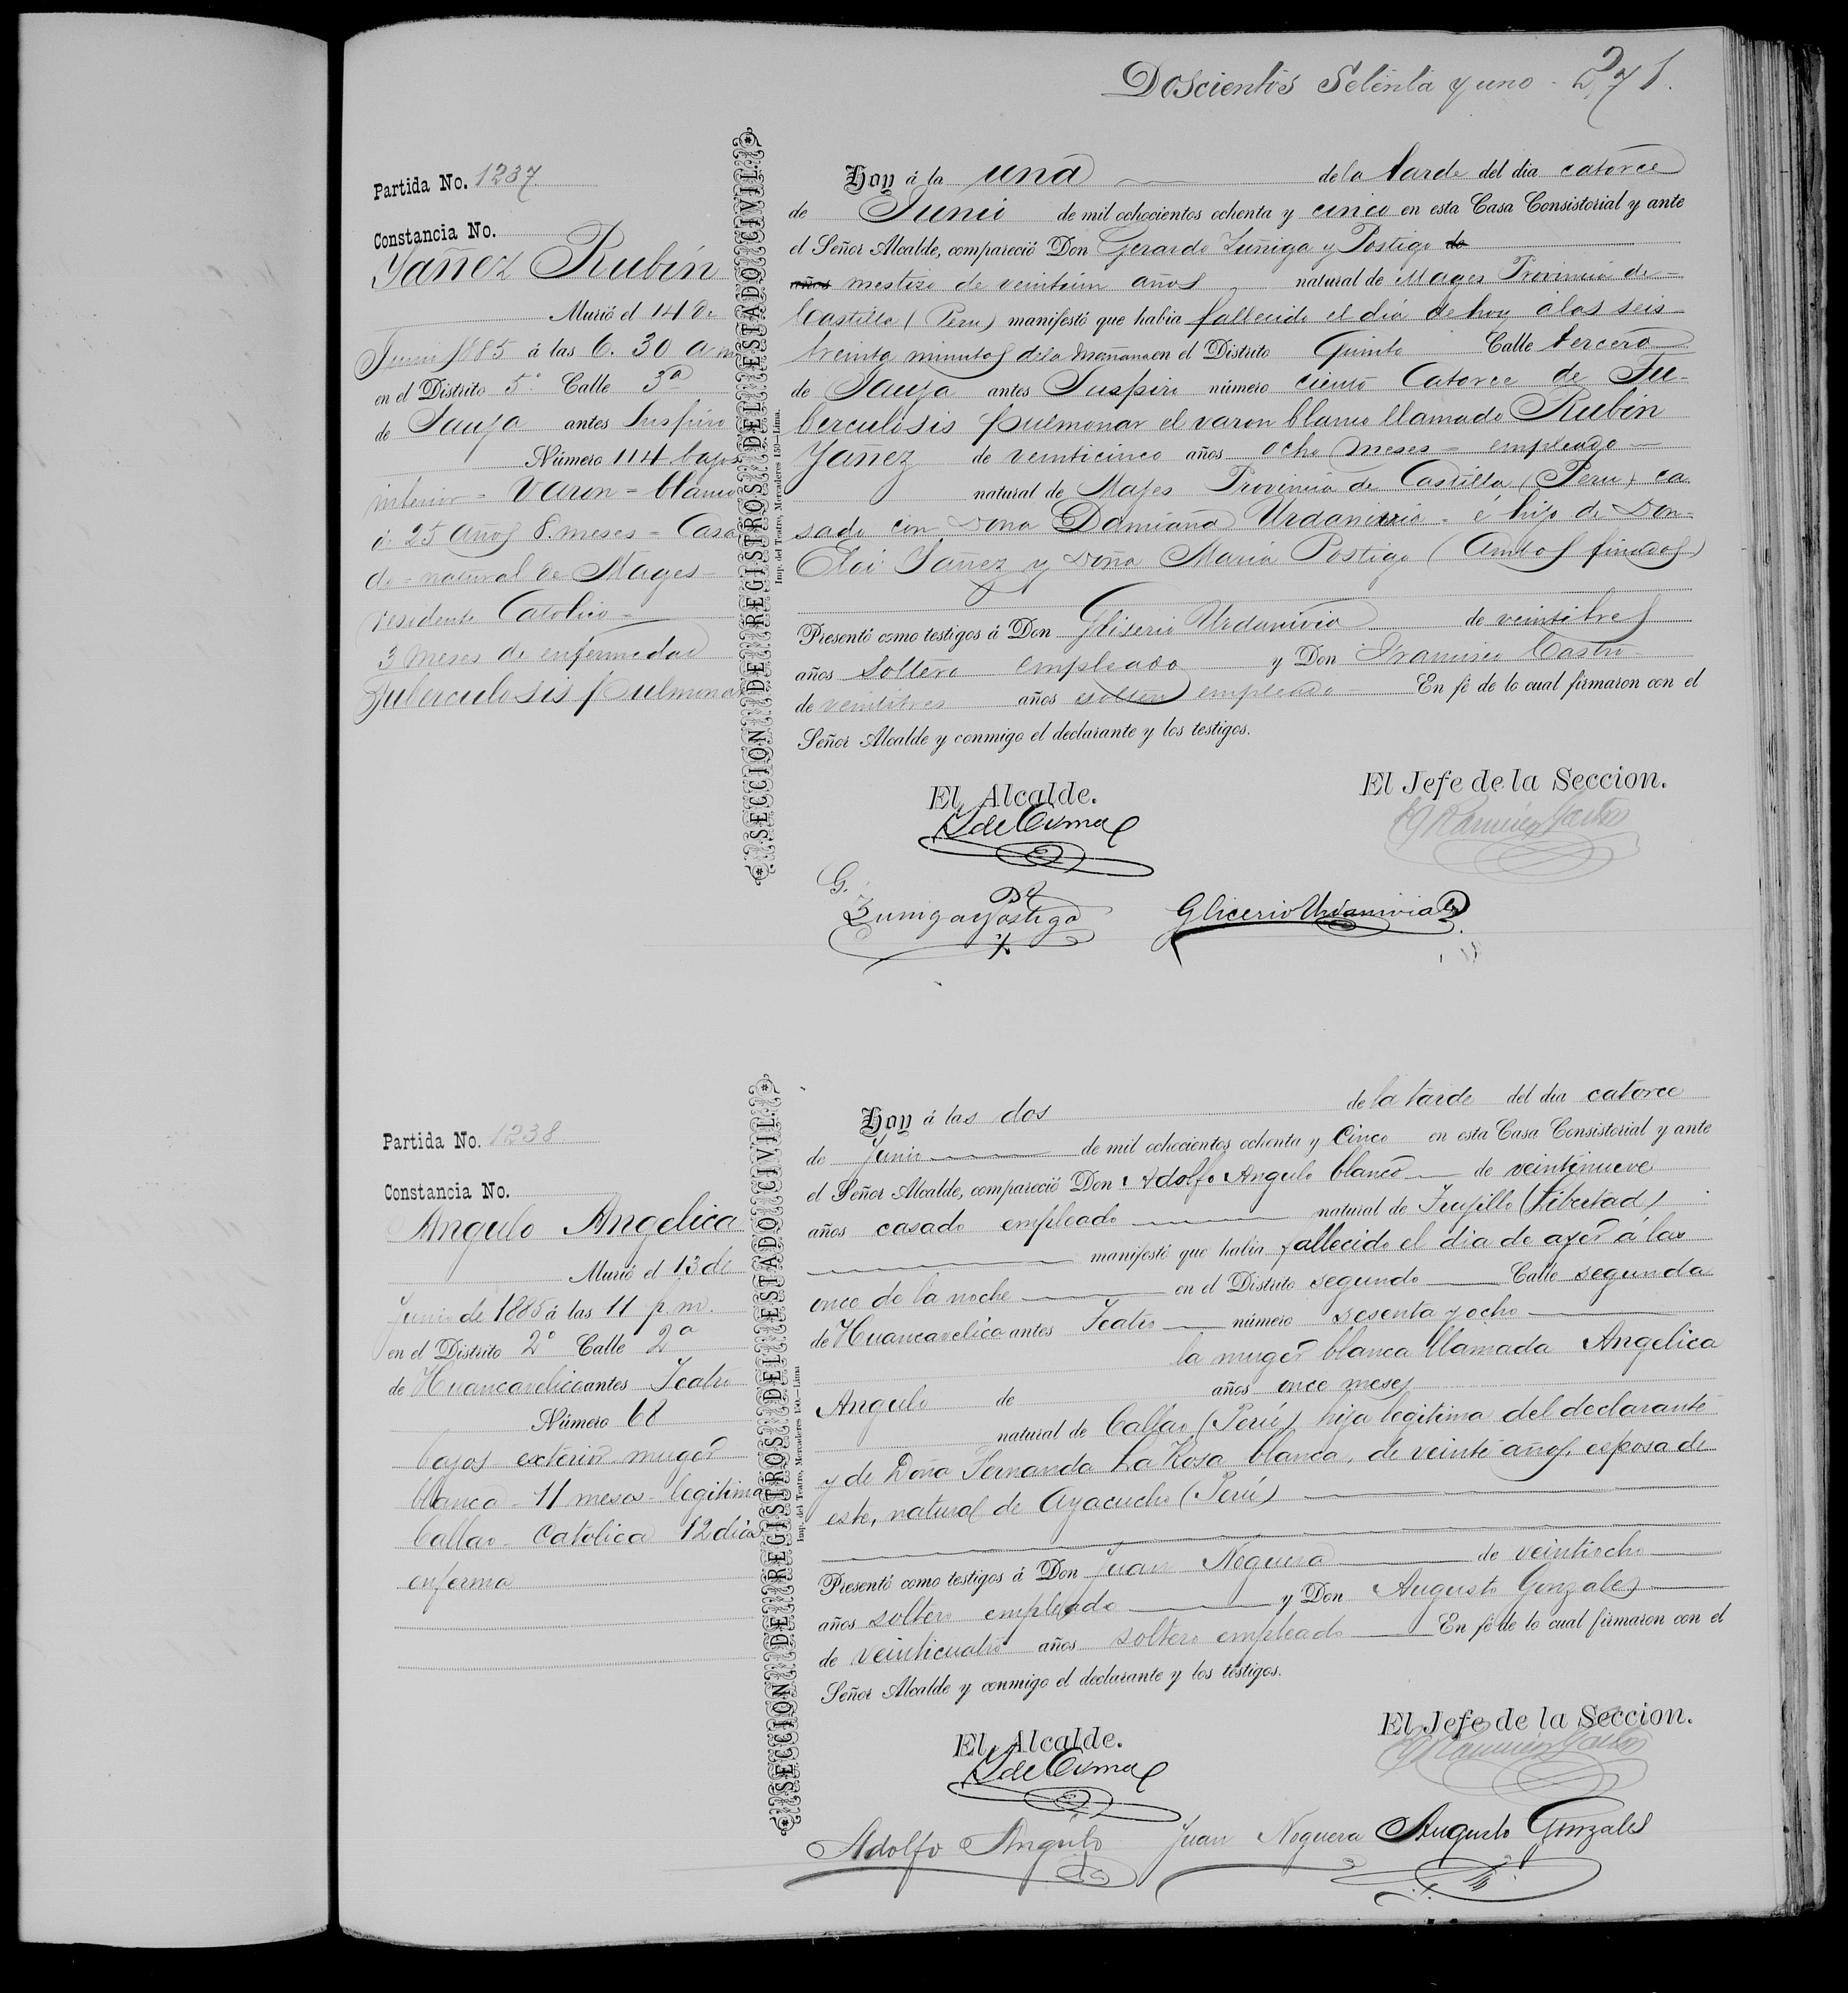 Doscientos Setenta y uno - 271.
Partida No. 1237
Constancia No.
Yañez Rubin
Murió el 14 de
Junio 1885 á las 6. 30 a m
en el Distrito 5º Calle 3ª
de Jauja antes Suspiro
Número 114 bajos
interior = varon = blanco
de 25 años 8. meses = Casa
do = natural de Mages =
residente Catolico =
3 meses de enfermedad
Tuberculosis pulmonar
SECCION DE REGISTROS DEL ESTADO CIVIL.
Imp. del Teatro, Mercaderes 150—Lima.
Hoy á la una de la tarde del dia catorce
de Junio de mil ochocientos ochenta y cinco en esta Casa Consistorial y ante
el Señor Alcalde, compareció Don Gerardo Zuñiga y Postigo de
años mestizo de veintiun años natural de Mages Provincia de
Castilla (Peru) manifestó que habia fallecido el dia de hoy a las seis
treinta minutos de la mañana en el Distrito Quinto Calle tercera
de Jauja antes Suspiro número ciento Catorce de Tu-
berculosis pulmonar el varon blanco llamado Rubin
Yañez de veinticinco años ocho meses = empleado
natural de Majes Provincia de Castilla (Peru) ca
sado con Dona Damiana Urdanivia = é hijo de Don
Eloi Yañez y Doña Maria Postigo (Ambos finados)
Presentó como testigos á Don Gliserio Urdanivia de veintitres
años soltero empleado y Don Francisco Castro
de veintitres años soltero empleado En fé de lo cual firmaron con el
Señor Alcalde y conmigo el declarante y los testigos.
El Alcalde.
El Jefe de la Seccion.
G.
Zuniga y Postigo
Glicerio Urdanivia
Partida No. 1238
Constancia No.
Angulo Angelica
Murió el 13 de
Junio de 1885 á las 11 p. m.
en el Distrito 2º Calle 2ª
de Huancavelica antes Teatro
Número 68
bajos exterior muger
blanca - 11 meses - legitima
Callao - Catolica 12 dias
enferma
SECCION DE REGISTROS DEL ESTADO CIVIL.
Imp. del Teatro, Mercaderes 150—Lima
Hoy á las dos de la tarde del dia catorce
de Junio de mil ochocientos ochenta y Cinco en esta Casa Consistorial y ante
el Señor Alcalde, compareció Don Adolfo Angulo blanco de veintinueve
años casado empleado natural de Trujillo (Libertad)
manifestó que habia fallecido el dia de ayer á las
once de la noche en el Distrito segundo Calle segunda
de Huancavelica antes Teatro número sesenta y ocho
la muger blanca llamada Angelica
Angulo de años once meses
natural de Callao (Perú) hija legitima del declarante
y de Doña Fernanda La Rosa blanca, de veinte años, esposa de
este, natural de Ayacucho (Perú)
Presentó como testigos á Don Juan Noguera de veintiocho
años soltero empleado y Don Augusto Gonzales
de veinticuatro años soltero empleado En fé de lo cual firmaron con el
Señor Alcalde y conmigo el declarante y los testigos.
El Alcalde.
El Jefe de la Seccion.
Adolfo Angulo Juan Noguera Augusto Gonzales